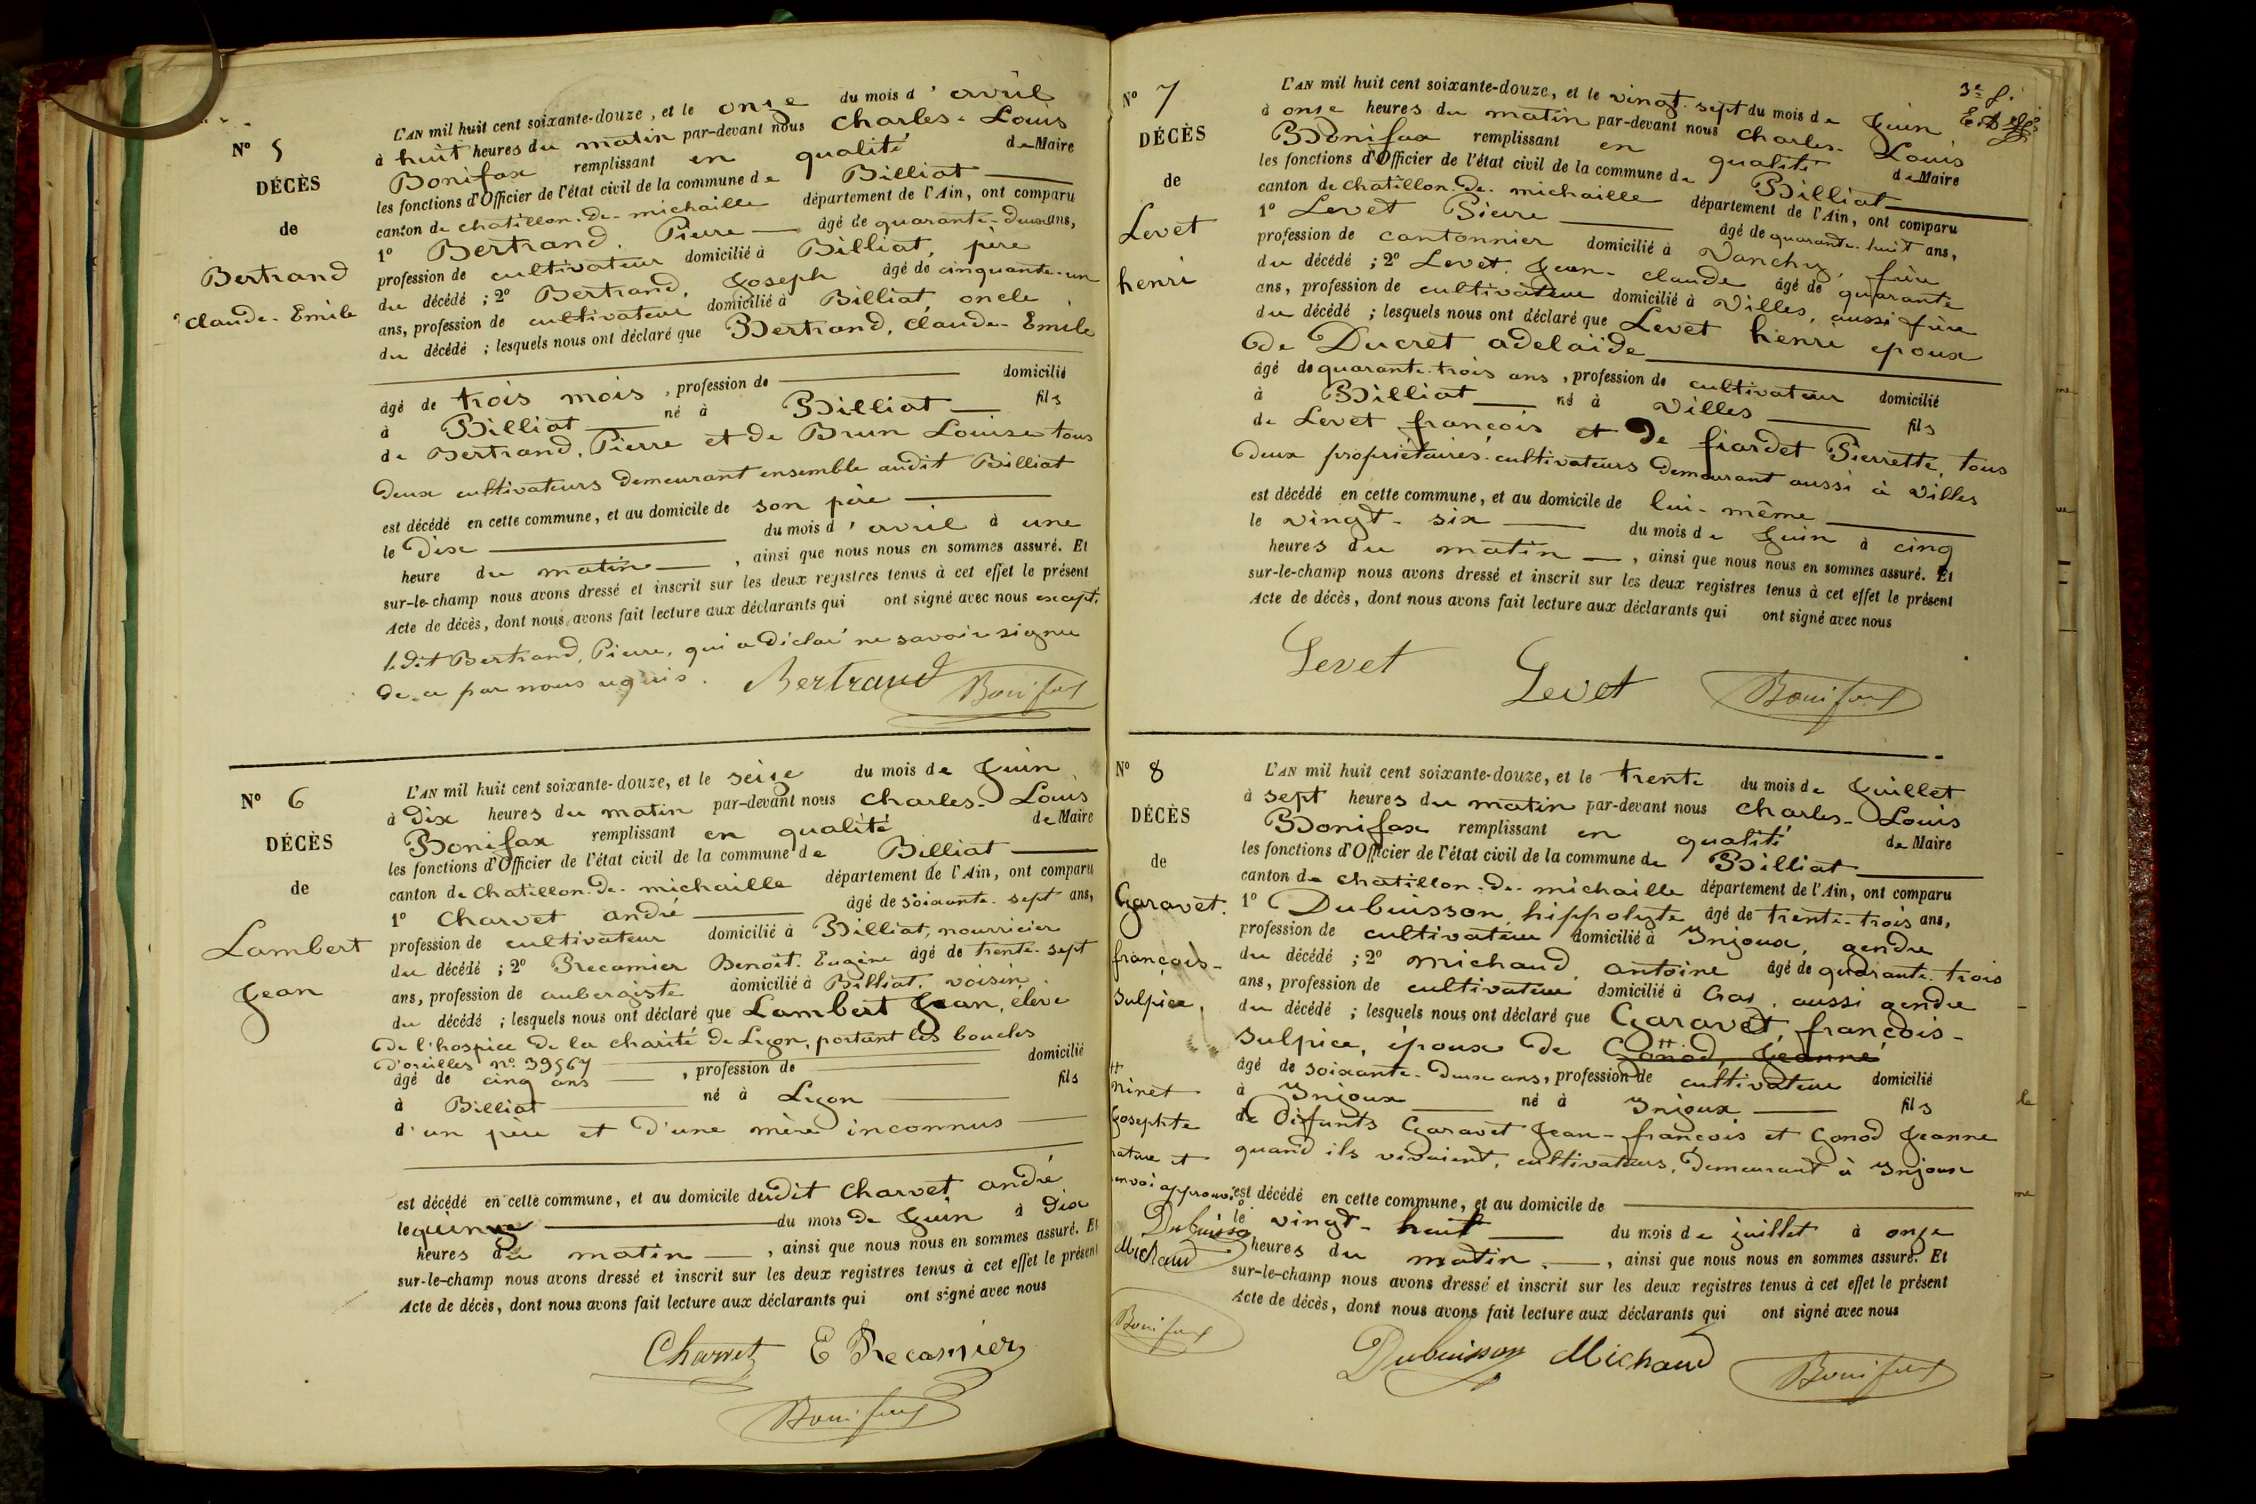 N° 5
DÉCÈS
de
Bertrand
Claude-Emile
L'AN mil huit cent soixante-douze, et le onze du mois d'avril
à huit heures du matin par-devant nous Charles-Louis
Bonifax remplissant en qualité de Maire
les fonctions d'Officier de l'état civil de la commune de Billiat
canton de Chatillon-de-michaille département de l'Ain, ont comparu
1° Bertrand, Pierre âgé de quarante-deux ans,
profession de cultivateur domicilié à Billiat, père
du décédé ; 2° Bertrand, Joseph âgé de cinquante-un
ans, profession de cultivateur domicilié à Billiat, oncle
du décédé ; lesquels nous ont déclaré que Bertrand, Claude-Emile
âgé de trois mois, profession de domicilié
à Billiat né à Billiat fils
de Bertrand, Pierre et de Brun Louise tous
deux cultivateurs demeurant ensemble audit Billiat
est décédé en cette commune, et au domicile de son père
le dix du mois d'avril à une
heure du matin, ainsi que nous nous en sommes assuré. Et
sur-le-champ nous avons dressé et inscrit sur les deux registres tenus à cet effet le présent
Acte de décès, dont nous avons fait lecture aux déclarants qui ont signé avec nous except.
ledit Bertrand, Pierre, qui a déclaré ne savoir signer
de ce par nous requis. Bertrand Bonifax
N° 6
DÉCÈS
de
Lambert
Jean
L'AN mil huit cent soixante-douze, et le seize du mois de Juin
à dix heures du matin par-devant nous Charles-Louis
Bonifax remplissant en qualité de Maire
les fonctions d'Officier de l'état civil de la commune de Billiat
canton de Chatillon-de-michaille département de l'Ain, ont comparu
1° Charvet andré âgé de soixante-sept ans,
profession de cultivateur domicilié à Billiat, nourricier
du décédé ; 2° Brecamier Benoît-Eugène âgé de trente-sept
ans, profession de aubergiste domicilié à Billiat, voisin
du décédé ; lesquels nous ont déclaré que Lambert Jean, élève
de l'hospice de la charité de Lyon, portant les boucles
d'oreilles n° 39567
âgé de cinq ans, profession de domicilié
à Billiat né à Lyon fils
d'un père et d'une mère inconnus
est décédé en cette commune, et au domicile dudit Charvet andré
le quinze du mois de Juin à dix
heures du matin, ainsi que nous nous en sommes assuré. Et
sur-le-champ nous avons dressé et inscrit sur les deux registres tenus à cet effet le présent
Acte de décès, dont nous avons fait lecture aux déclarants qui ont signé avec nous
Charvet E Brecamier
Bonifax
3e f.
N° 7
DÉCÈS
de
Levet
henri
L'AN mil huit cent soixante-douze, et le vingt-sept du mois de Juin
à onze heures du matin par-devant nous Charles-Louis
Bonifax remplissant en qualité de Maire
les fonctions d'Officier de l'état civil de la commune de Billiat
canton de Chatillon-de-michaille département de l'Ain, ont comparu
1° Levet Pierre âgé de quarante-huit ans,
profession de cantonnier domicilié à Vanchy, frère
du décédé ; 2° Levet, Jean-claude âgé de quarante
ans, profession de cultivateur domicilié à Villes, aussi frère
du décédé ; lesquels nous ont déclaré que Levet henri époux
de Ducret adelaide
âgé de quarante-trois ans, profession de cultivateur domicilié
à Billiat né à Villes fils
de Levet françois et de fiardet Pierrette, tous
deux propriétaires-cultivateurs demeurant aussi à Villes
est décédé en cette commune, et au domicile de lui-même
le vingt-six du mois de Juin à cinq
heures du matin, ainsi que nous nous en sommes assuré. Et
sur-le-champ nous avons dressé et inscrit sur les deux registres tenus à cet effet le présent
Acte de décès, dont nous avons fait lecture aux déclarants qui ont signé avec nous
Levet Levet Bonifax
N° 8
DÉCÈS
de
Garavet
françois-
Sulpice,
L'AN mil huit cent soixante-douze, et le trente du mois de Juillet
à sept heures du matin par-devant nous Charles-Louis
Bonifax remplissant en qualité de Maire
les fonctions d'Officier de l'état civil de la commune de Billiat
canton de Chatillon-de-michaille département de l'Ain, ont comparu
1° Dubuisson hippolyte âgé de trente-trois ans,
profession de cultivateur domicilié à Injoux, gendre
du décédé ; 2° michaud, antoine âgé de quarante-trois
ans, profession de cultivateur domicilié à Cras, aussi gendre
du décédé ; lesquels nous ont déclaré que Garavet françois-
Sulpice, époux de Gonod, Jeanne
âgé de soixante-deux ans, profession de cultivateur domicilié
à Injoux né à Injoux fils
de défunts Garavet Jean-françois et Gonod Jeanne
quand ils vivaient, cultivateurs, demeurant à Injoux
est décédé en cette commune, et au domicile de
le vingt-huit du mois de juillet à onze
heures du matin, ainsi que nous nous en sommes assuré. Et
sur-le-champ nous avons dressé et inscrit sur les deux registres tenus à cet effet le présent
Acte de décès, dont nous avons fait lecture aux déclarants qui ont signé avec nous
Dubuisson Michaud Bonifax
ninet
Josephte
rature et
envoi approuvé
Dubuisson
Michaud
Bonifax